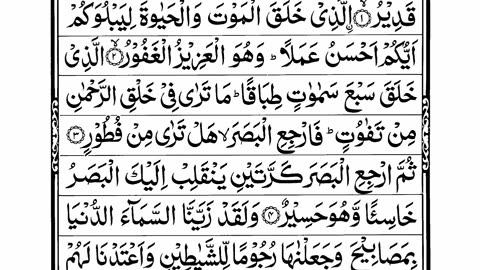 قَدِیْرُۙ﴿۱﴾ اۨلَّذِیْ خَلَقَ الْمَوْتَ وَالْحَیٰوةَ لِیَبْلُوَكُمْ
اَیُّكُمْ اَحْسَنُ عَمَلًاؕ وَهُوَ الْعَزِیْزُ الْغَفُوْرُۙ﴿۲﴾ الَّذِیْ
خَلَقَ سَبْعَ سَمٰوٰتٍ طِبَاقًاؕ مَا تَرٰی فِیْ خَلْقِ الرَّحْمٰنِ
مِنْ تَفٰوُتٍؕ فَارْجِعِ الْبَصَرَۙ هَلْ تَرٰی مِنْ فُطُوْرٍ﴿۳﴾
ثُمَّ ارْجِعِ الْبَصَرَ كَرَّتَیْنِ یَنْقَلِبْ اِلَیْكَ الْبَصَرُ
خَاسِئًا وَّهُوَ حَسِیْرٌ﴿۴﴾ وَلَقَدْ زَیَّنَّا السَّمَآءَ الدُّنْیَا
بِمَصَابِیْحَ وَجَعَلْنٰهَا رُجُوْمًا لِّلشَّیٰطِیْنِ وَاَعْتَدْنَا لَهُمْ